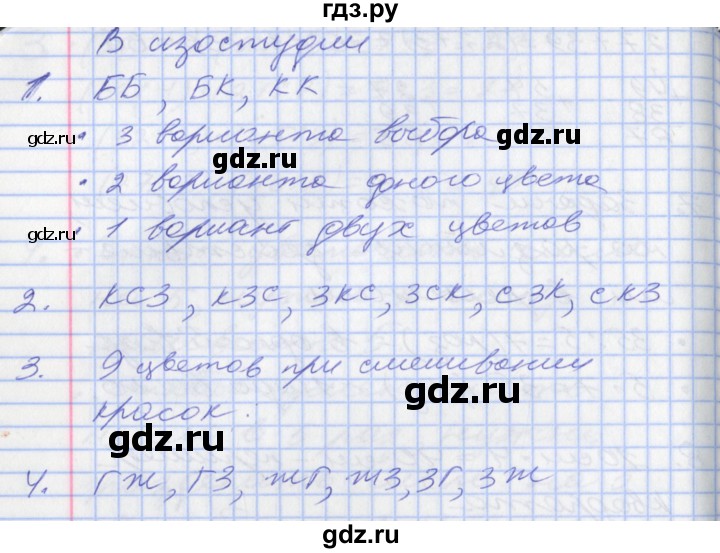 гдз.ру
В изостудии
1. ББ, БК, КК
• 3 варианта выбора
gdz.ru
gdz.ru
gdz.ru
• 2 варианта одного цвета
• 1 вариант двух цветов
gdz.ru
2. КСЗ, КЗС, ЗКС, ЗСК, СЗК, СКЗ
3. 9 цветов при смешивании
gdz.ru
красок.
gdz.ru
4. ГЖ, ГЗ, ЖГ, ЖЗ, ЗГ, ЗЖ
gdz.ru